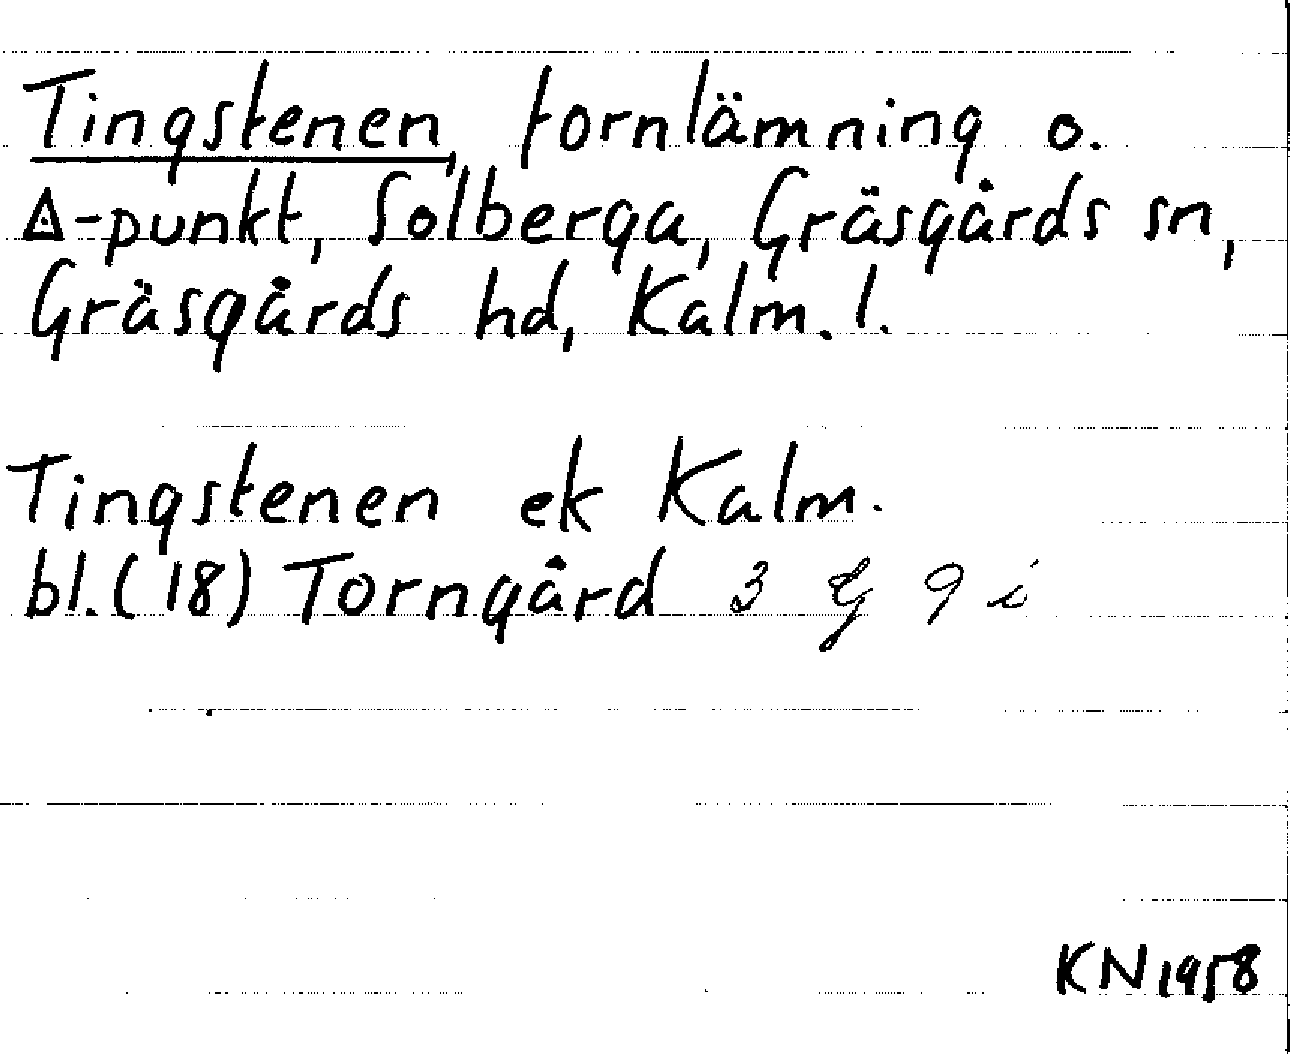 Tingstenen, fornlämning o.
△-punkt, Solberga, Gräsgårds sn,
Gräsgårds hd, Kalm. l.
Tingstenen ek Kalm.
bl. (18) Torngård 3 G 9 i
KN 1958